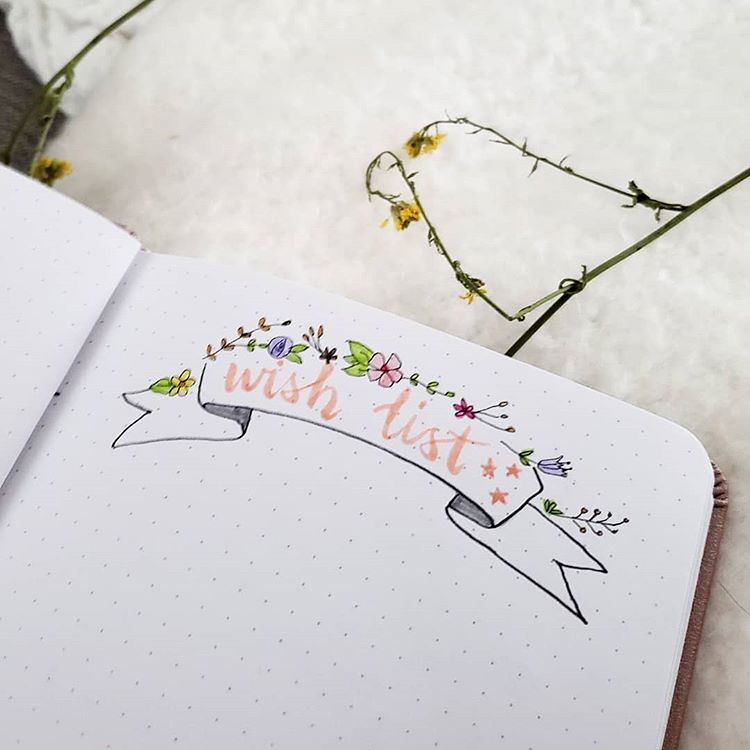 wish list